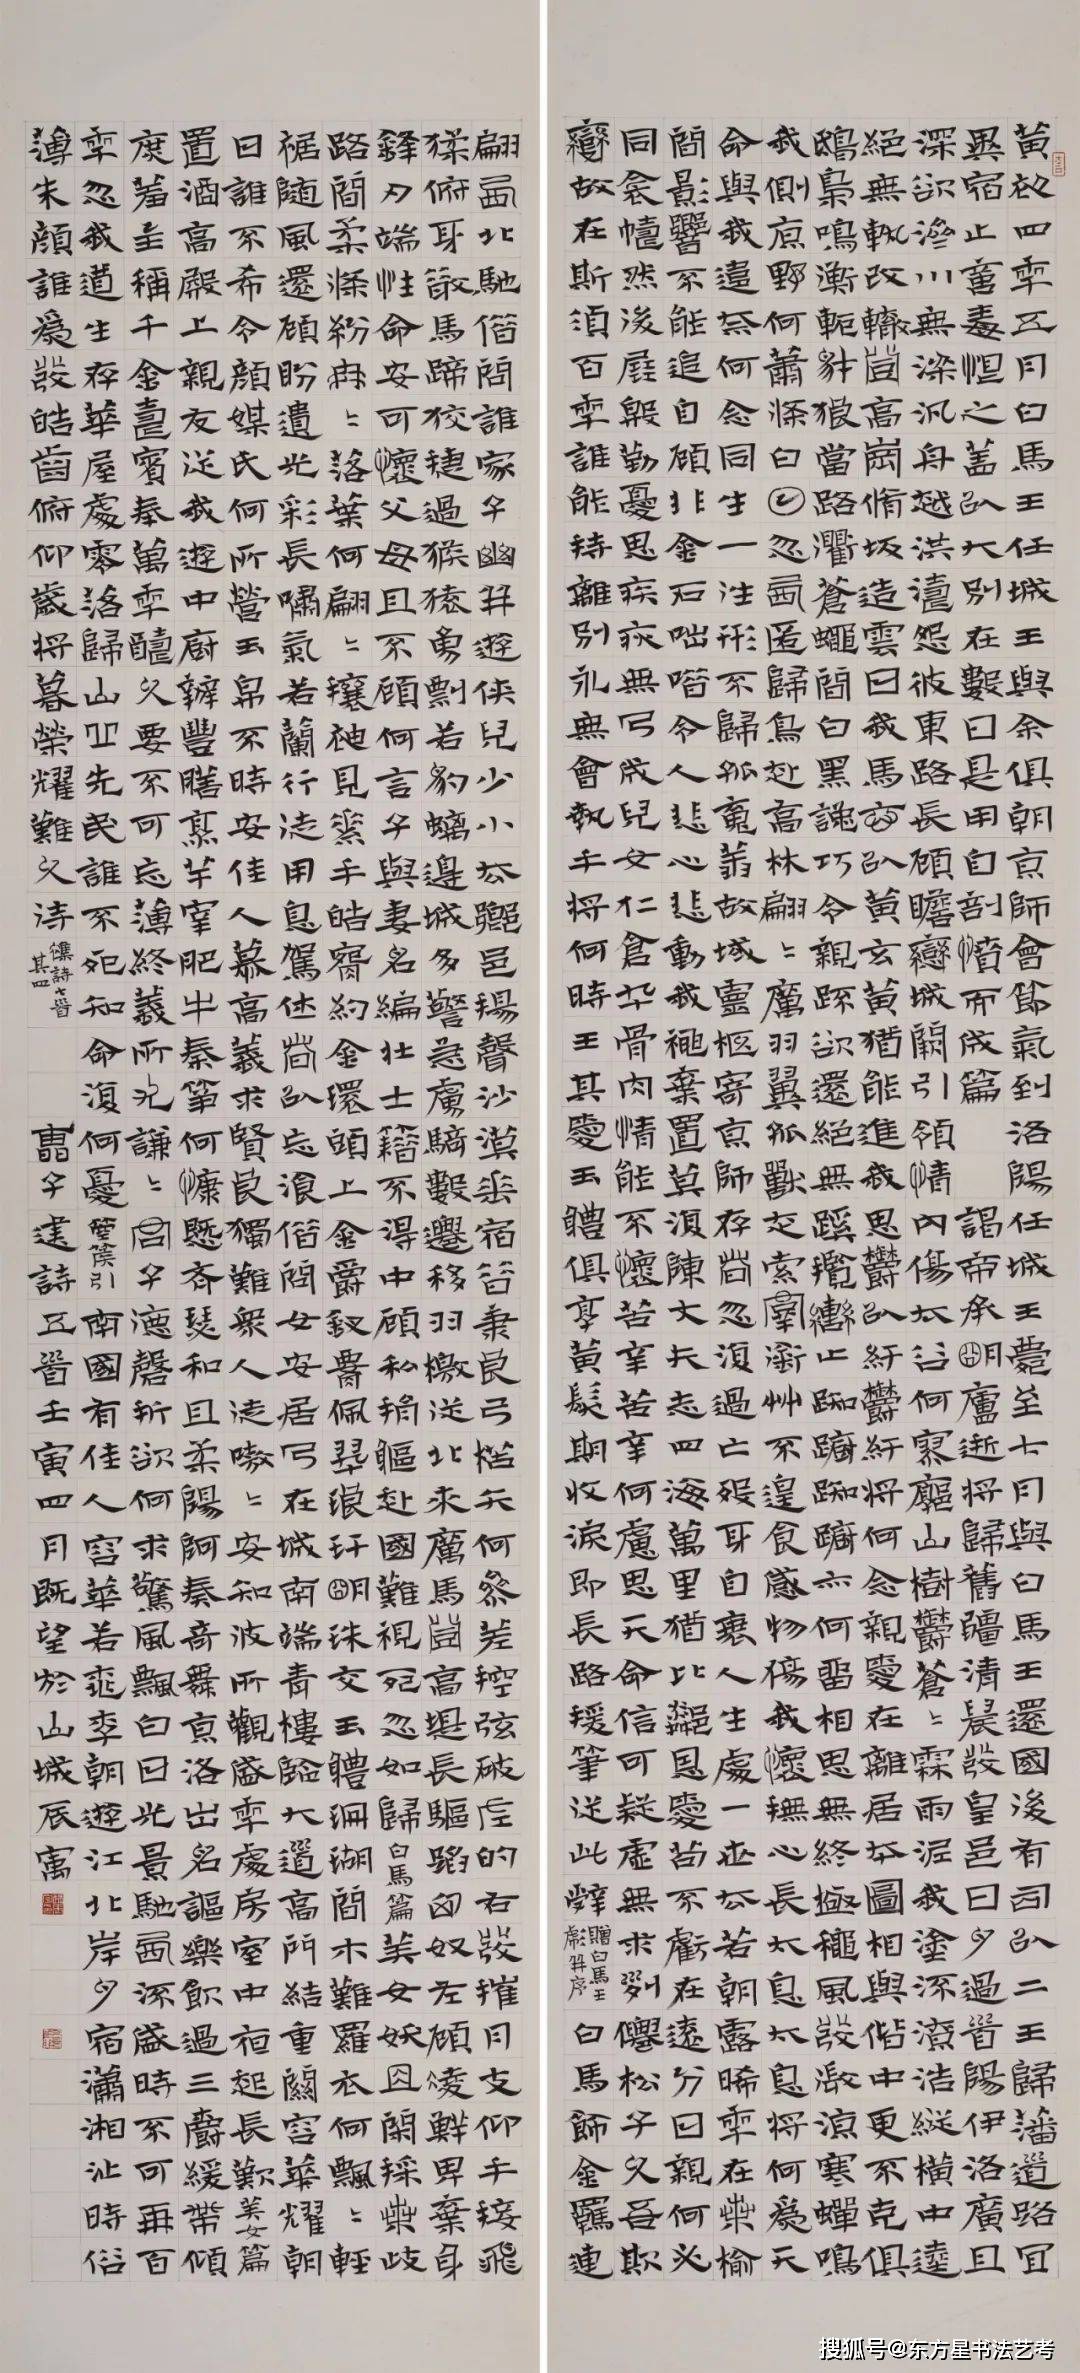 黃初四年五月白馬王任城王與余俱朝京師會節氣到洛陽任城王薨至七月與白馬王還國後有司以二王歸藩道路宜
異宿止意毒恨之蓋以大別在數日是用自剖憤而成篇 謁帝承明廬逝將歸舊疆清晨發皇邑日夕過首陽伊洛廣且
深欲濟川無梁汎舟越洪濤怨彼東路長顧瞻戀城闕引領情內傷太谷何寥廓山樹鬱蒼〻霖雨泥我塗流潦浩縱橫中逵
絕無軌改轍登高崗脩坂造雲日我馬玄以黃玄黃猶能進我思鬱以紆鬱紆將何念親愛在離居本圖相與偕中更不克俱
鴟梟鳴衡軛豺狼當路衢蒼蠅間白黑讒巧令親疏欲還絕無蹊攬轡止踟躕踟躕亦何留相思無終極秋風發微涼寒蟬鳴
我側原野何蕭條白日忽西匿歸鳥赴高林翩〻厲羽翼孤獸走索群銜草不遑食感物傷我懷撫心長太息太息將何為天
命與我違奈何念同生一往形不歸孤魂翔故城靈柩寄京師存者忽復過亡歿身自衰人生處一世去若朝露晞年在桑榆
間影響不能追自顧非金石咄喈令人悲心悲動我神棄置莫復陳丈夫志四海萬里猶比鄰恩愛苟不虧在遠分日親何必
同衾幬然後展慇懃憂思疾疢無乃成兒女仁倉卒骨肉情能不懷苦辛苦辛何慮思天命信可疑虛無求列仙松子久吾欺
變故在斯須百年誰能持離別永無會執手將何時王其愛玉體俱享黃髮期收淚即長路援筆從此辭 贈白馬王彪并序 白馬飾金羈連
翩西北馳借問誰家子幽并遊俠兒少小去鄉邑揚聲沙漠垂宿昔秉良弓楛矢何參差控弦破左的右發摧月支仰手接飛
猱俯身散馬蹄狡捷過猴猿勇剽若豹螭邊城多警急虜騎數遷移羽檄從北來厲馬登高堤長驅蹈匈奴左顧凌鮮卑棄身
鋒刃端性命安可懷父母且不顧何言子與妻名編壯士籍不得中顧私捐軀赴國難視死忽如歸 白馬篇 美女妖且閑採桑歧
路間柔條紛冉〻落葉何翩〻攘袖見素手皓腕約金環頭上金爵釵腰佩翠琅玕明珠交玉體珊瑚間木難羅衣何飄〻輕
裾隨風還顧盼遺光彩長嘯氣若蘭行徒用息駕休者以忘飡借問女安居乃在城南端青樓臨大道高門結重關容華耀朝
日誰不希令顏媒氏何所營玉帛不時安佳人慕高義求賢良獨難眾人徒嗷〻安知彼所觀盛年處房室中夜起長歎 美女篇
置酒高殿上親友從我遊中廚辦豐膳烹羊宰肥牛秦箏何慷慨齊瑟和且柔陽阿奏奇舞京洛出名謳樂飲過三爵緩帶傾
庶羞主稱千金壽賓奉萬年酬久要不可忘薄終義所尤謙〻君子德磬折欲何求驚風飄白日光景馳西流盛時不可再百
年忽我遒生存華屋處零落歸山丘先民誰不死知命復何憂 箜篌引 南國有佳人容華若桃李朝遊江北岸夕宿瀟湘沚時俗
薄朱顏誰為發皓齒俯仰歲將暮榮耀難久恃 雜詩七首其四 曹子建詩五首壬寅四月既望於山城辰寓
搜狐号@东方星书法艺考